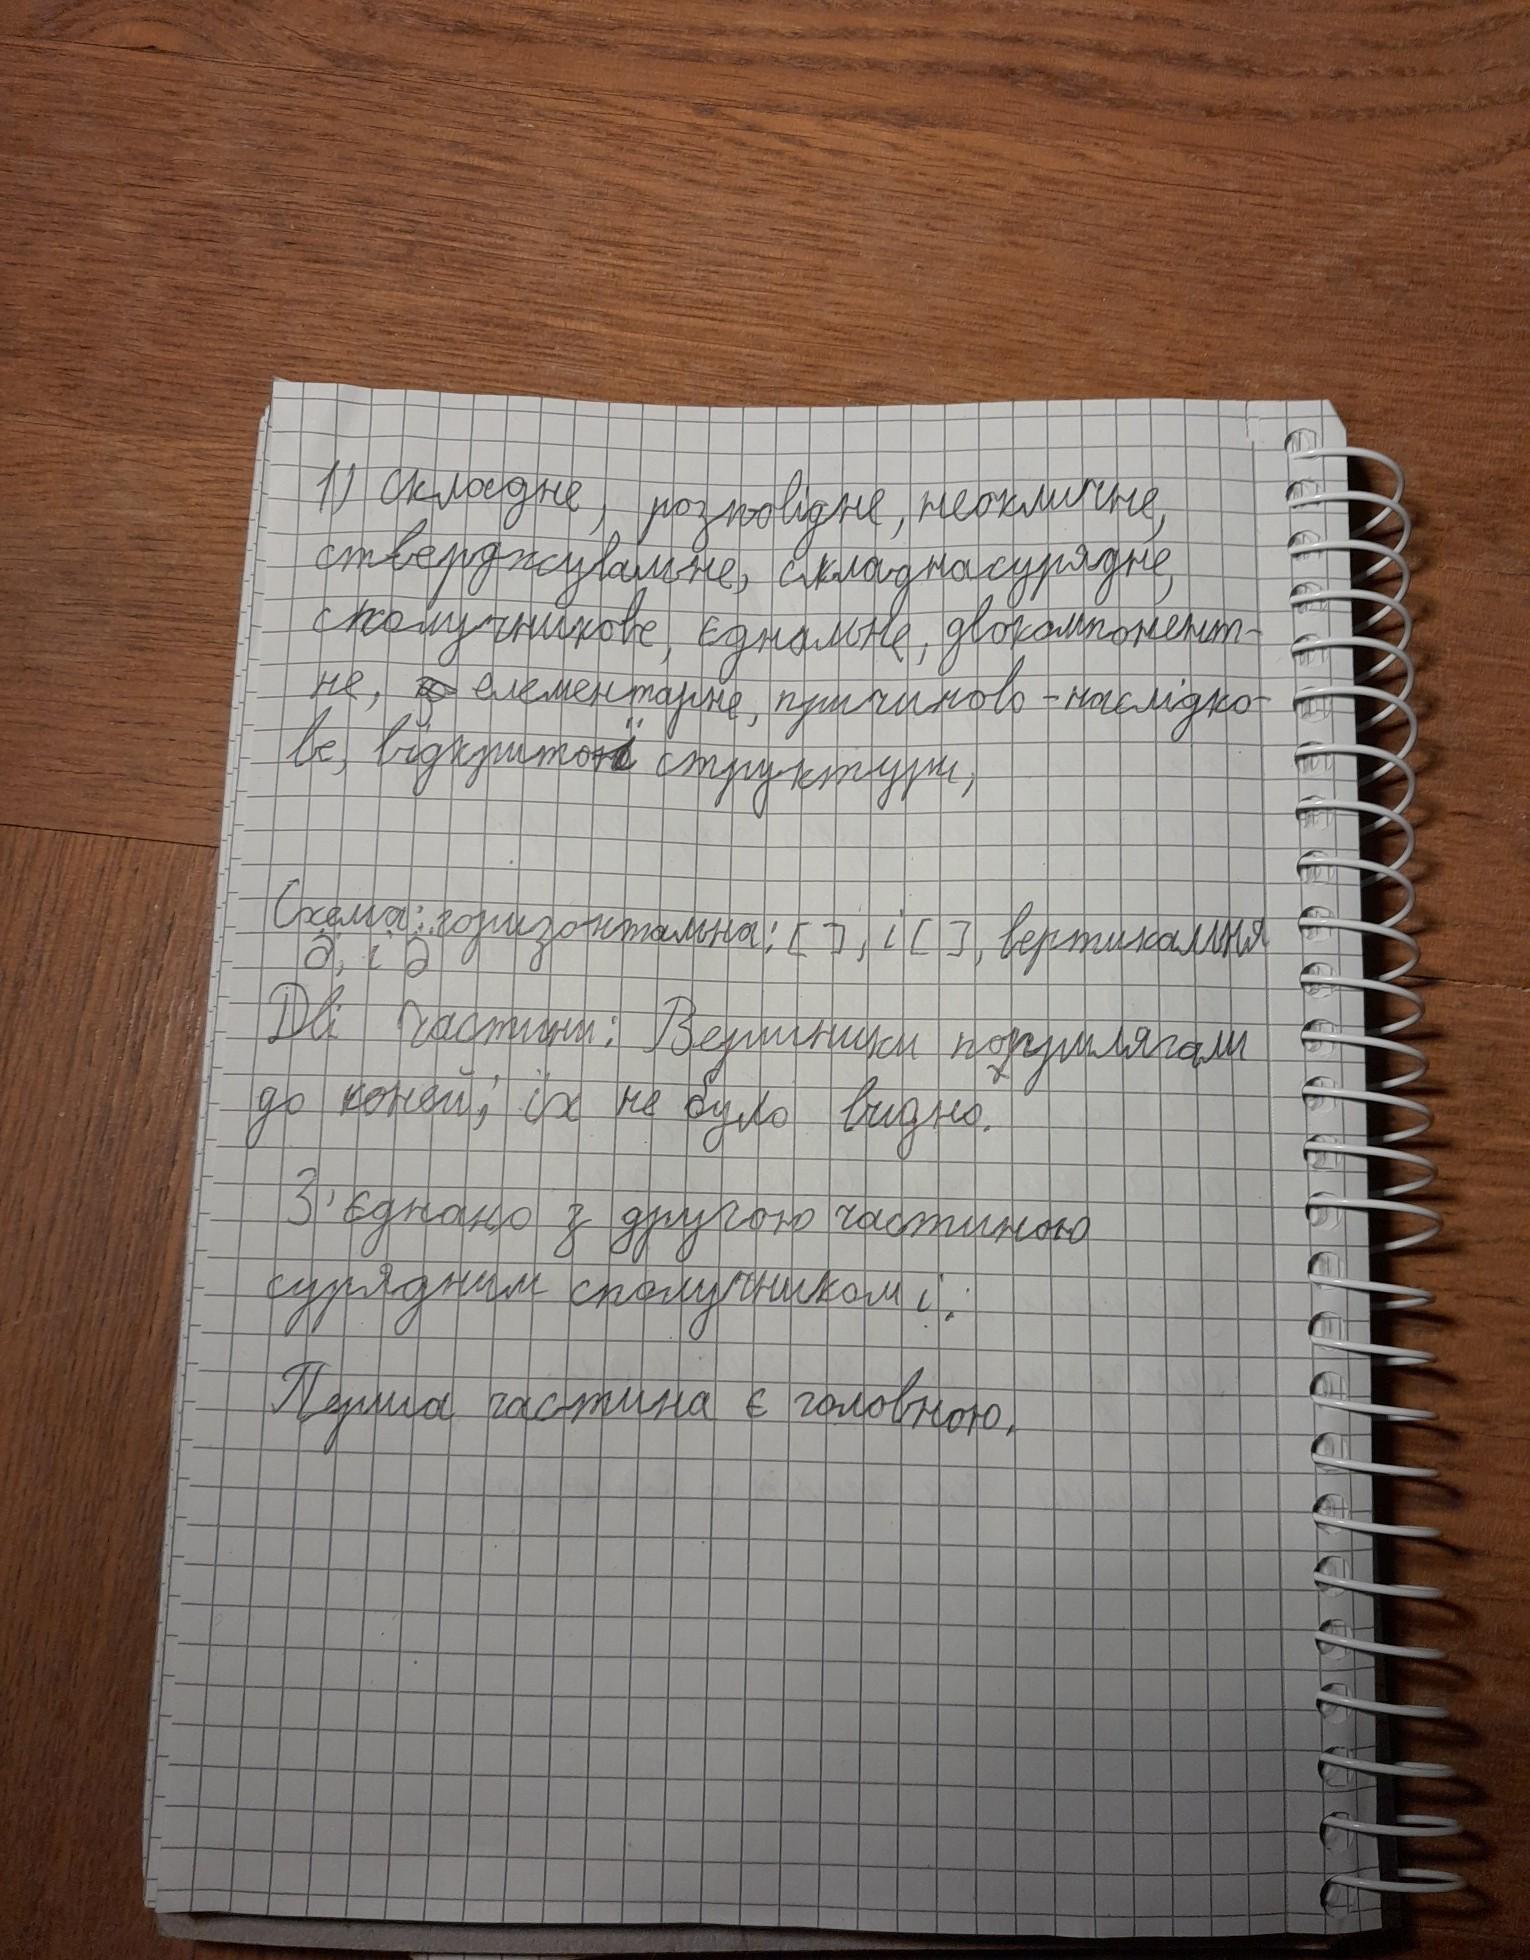 1) складне, розповідне, неоклична,
стверджувальне, складнасурядне,
сполучникове, єднальне, двокомпонент-
не, елементарне, причиново-наслідко-
ве, відкритої структури,
Схема: горизонтальна: [ ], і [ ], вертикальня
Дві частини: Вершники поприлягали
до коней; їх не було видно.
З'єднано з другою частиною
сурядним сполучником і.
Перша частина є головною.